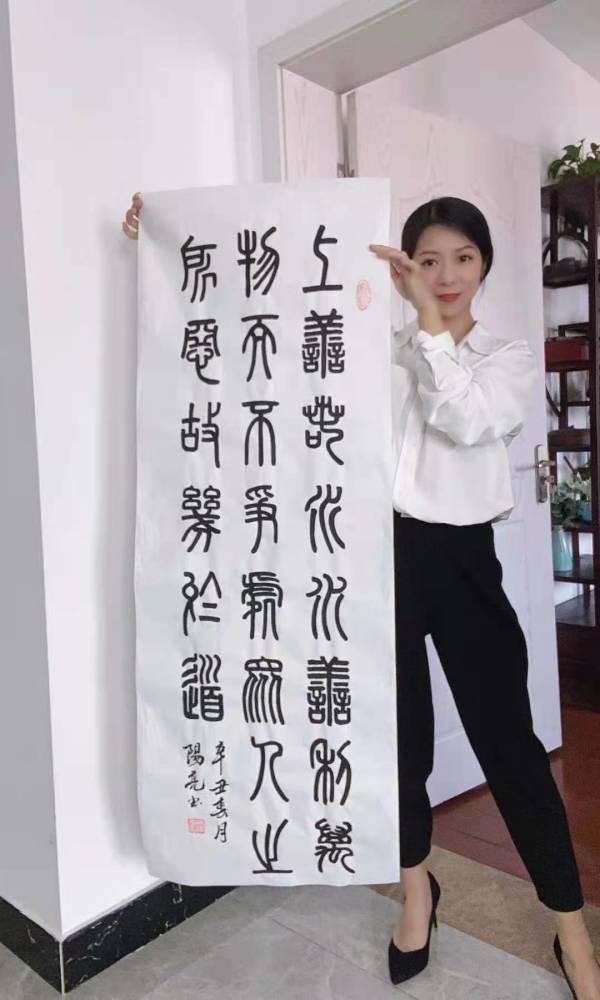 上善若水水善利萬
物而不爭處眾人之
所惡故幾於道
辛丑春月
陽亮书